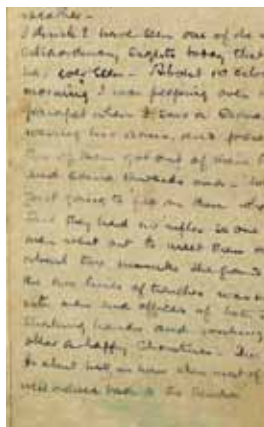 weather.
I think I have seen one of the
extraordinary sights today that
has ever seen. About 10 o'clock
morning I was peeping over
parapet when I saw a German
waving his arms, and
of them got out of their
and came towards ours.
just going to fire on them when
they had no rifles so one
men went out to meet them
about two minutes the ground
the two lines of trenches was
with men and officers of both
shaking hands and wishing
other a happy Christmas.
for about half an hour when most of
were ordered back to the trenches